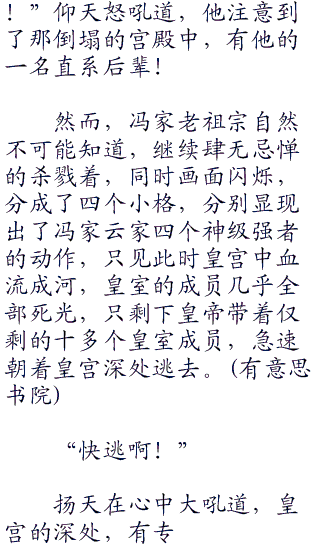 ！”仰天怒吼道，他注意到
了那倒塌的宫殿中，有他的
一名直系后辈！
然而，冯家老祖宗自然
不可能知道，继续肆无忌惮
的杀戮着，同时画面闪烁，
分成了四个小格，分别显现
出了冯家云家四个神级强者
的动作，只见此时皇宫中血
流成河，皇室的成员几乎全
部死光，只剩下皇帝带着仅
剩的十多个皇室成员，急速
朝着皇宫深处逃去。(有意思
书院)
“快逃啊！”
扬天在心中大吼道，皇
宫的深处，有专